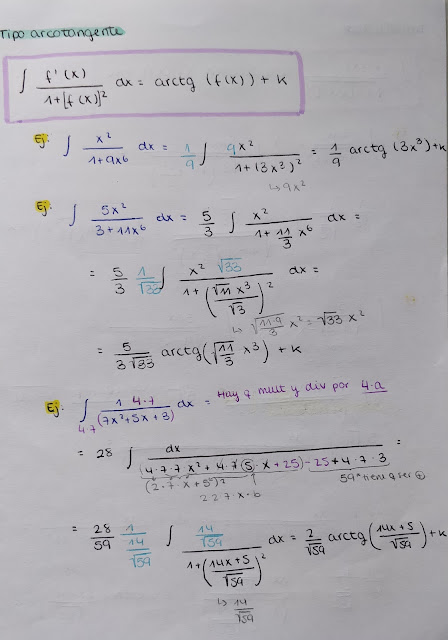 Tipo arcotangente
∫ f'(x) / 1+[f(x)]² dx = arctg (f(x)) + k
Ej. ∫ x² / 1+9x⁶ dx = 1/9 ∫ 9x² / 1+(3x³)² = 1/9 arctg (3x³)+k
↳ 9x²
Ej. ∫ 5x² / 3+11x⁶ dx = 5/3 ∫ x² / 1+ 11/3 x⁶ dx =
= 5/3 1/√33 ∫ x² √33 / 1+(√11 x³ / √3)² dx =
↳ √11·9 / 3 x² = √33 x²
= 5 / 3√33 arctg(√11/3 x³) + k
Ej. ∫ 1 4·7 / 4·7 (7x²+5x+3) dx = Hay q mult y div por 4·a
= 28 ∫ dx / (4·7·7x²+4·7·5·x+25)-25+4·7·3 =
(2·7·x+5)² 59 ^ tiene q ser ⊕
2·7·x·b
= 28/59 1 / 14/√59 ∫ 14/√59 / 1+(14x+5 / √59)² dx = 2/√59 arctg(14x+5 / √59)+k
↳ 14/√59